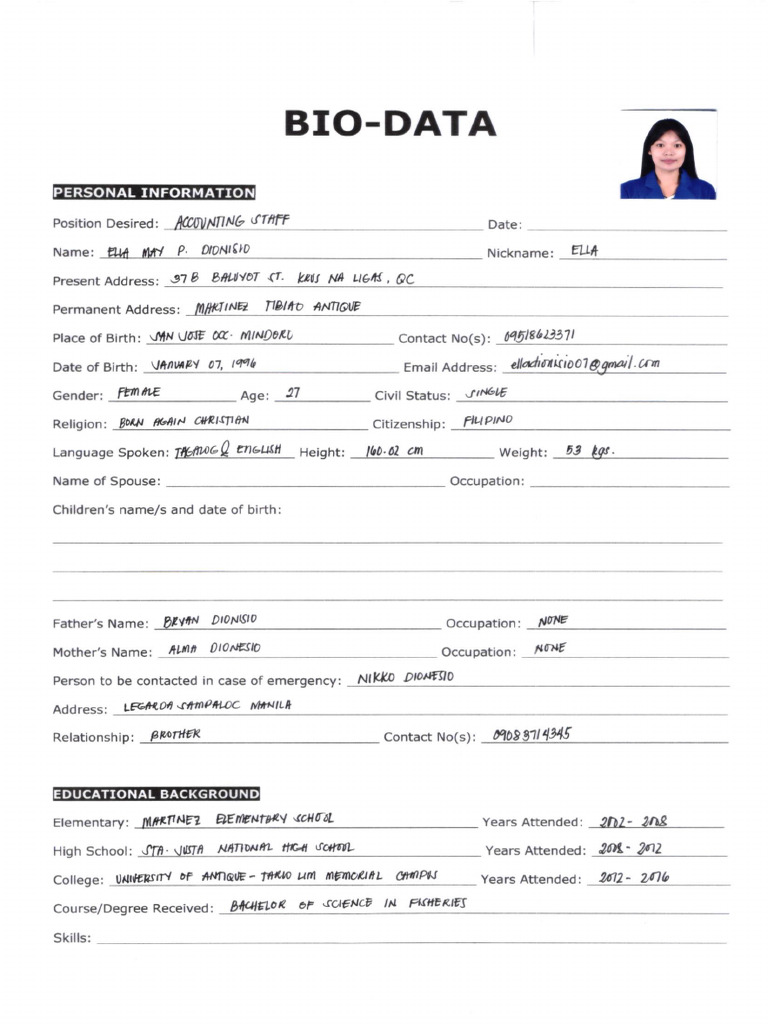 BIO-DATA
PERSONAL INFORMATION
Position Desired: ACCOUNTING STAFF Date:
Name: ELLA MAY P. DIONISIO Nickname: ELLA
Present Address: 37 B BALUYOT ST. KRUS NA LIGAS, QC
Permanent Address: MARTINEZ TIBIAO ANTIQUE
Place of Birth: SAN JOSE OCC. MINDORO Contact No(s): 09518623371
Date of Birth: JANUARY 07, 1996 Email Address: elladionisio07@gmail.com
Gender: FEMALE Age: 27 Civil Status: SINGLE
Religion: BORN AGAIN CHRISTIAN Citizenship: FILIPINO
Language Spoken: TAGALOG & ENGLISH Height: 160.02 cm Weight: 53 kgs.
Name of Spouse: Occupation:
Children's name/s and date of birth:
Father's Name: BRYAN DIONISIO Occupation: NONE
Mother's Name: ALMA DIONESIO Occupation: NONE
Person to be contacted in case of emergency: NIKKO DIONESIO
Address: LEGARDA SAMPALOC MANILA
Relationship: BROTHER Contact No(s): 09083714345
EDUCATIONAL BACKGROUND
Elementary: MARTINEZ ELEMENTARY SCHOOL Years Attended: 2002 - 2008
High School: STA. JUSTA NATIONAL HIGH SCHOOL Years Attended: 2008 - 2012
College: UNIVERSITY OF ANTIQUE - TARIO LIM MEMORIAL CAMPUS Years Attended: 2012 - 2016
Course/Degree Received: BACHELOR OF SCIENCE IN FISHERIES
Skills: